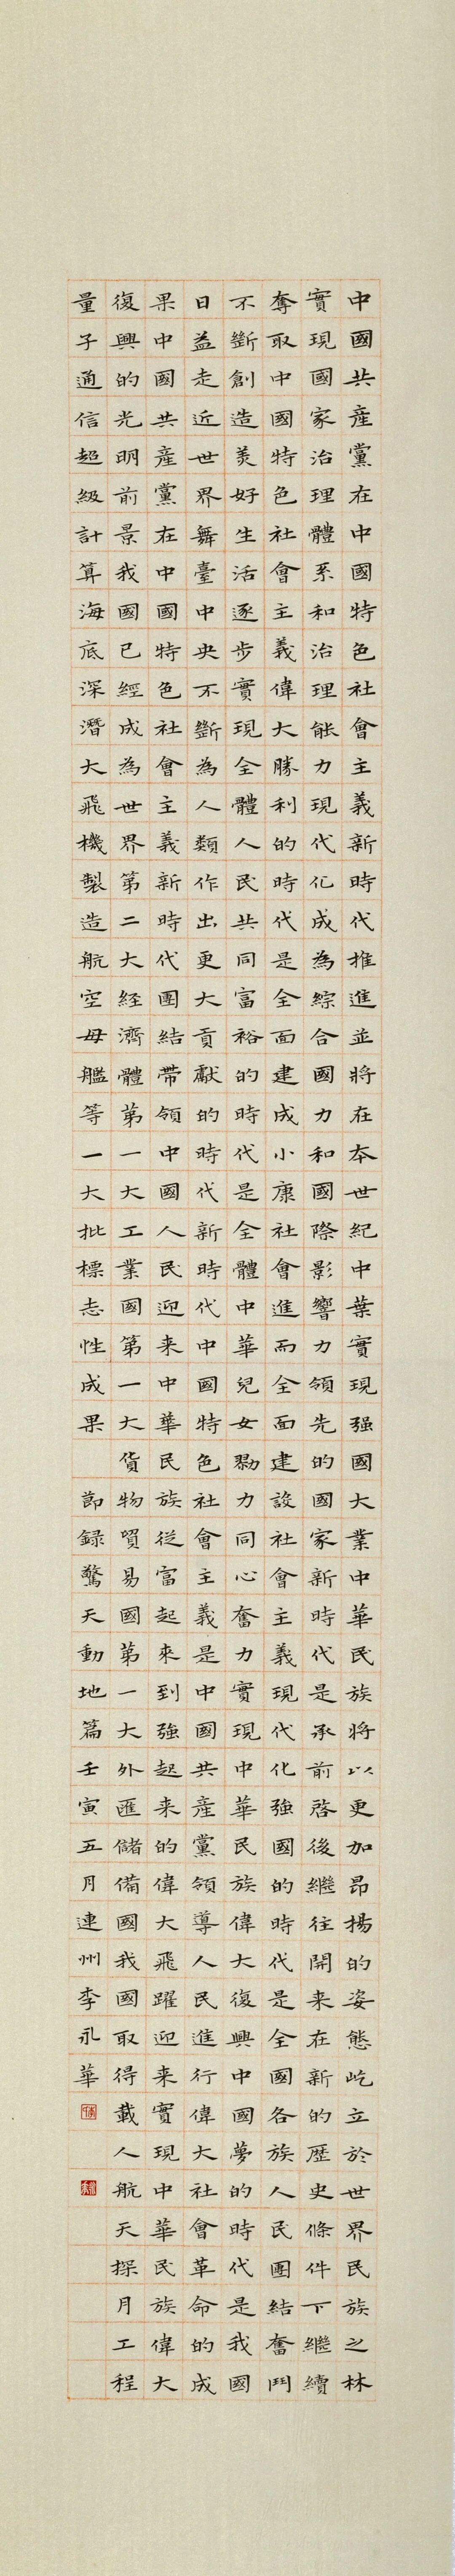 中國共產黨在中國特色社會主義新時代推進並將在本世紀中葉實現强國大業中華民族將以更加昂揚的姿態屹立於世界民族之林
實現國家治理體系和治理能力現代化成為綜合國力和國際影響力領先的國家新時代是承前啓後繼往開来在新的歷史條件下繼續
奪取中國特色社會主義偉大勝利的時代是全面建成小康社會進而全面建設社會主義現代化強國的時代是全國各族人民團結奮鬥
不斷創造美好生活逐步實現全體人民共同富裕的時代是全體中華兒女勠力同心奮力實現中華民族偉大復興中國夢的時代是我國
日益走近世界舞臺中央不斷為人類作出更大貢獻的時代新時代中國特色社會主義是中國共產黨領導人民進行偉大社會革命的成
果中國共產黨在中國特色社會主義新時代團結帶領中國人民迎来中華民族從富起來到強起来的偉大飛躍迎来實現中華民族偉大
復興的光明前景我國已經成為世界第二大経濟體第一大工業國第一大貨物貿易國第一大外匯儲備國我國取得載人航天探月工程
量子通信超級計算海底深潛大飛機製造航空母艦等一大批標志性成果
節録驚天動地篇壬寅五月連州李永華